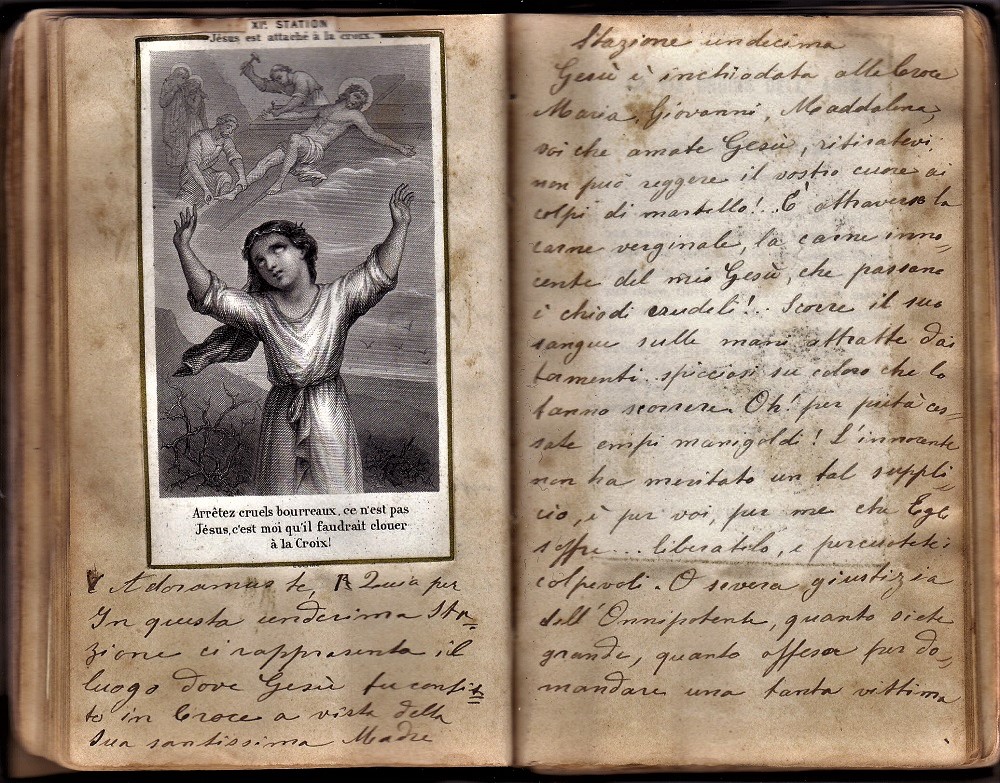 XIe STATION
Jésus est attaché à la croix.
Arrêtez cruels bourreaux, ce n'est pas
Jésus, c'est moi qu'il faudrait clouer
à la Croix!
V Adoramus te, R Quia per
In questa undecima Sta=
zione ci rappresenta il
luogo dove Gesù fu confit=
to in Croce a vista della
Sua santissima Madre
Stazione undecima
Gesù è inchiodato alle Croce
Maria, Giovanni, Maddalena,
voi che amate Gesù, ritiratevi,
non può reggere il vostro cuore ai
colpi di martello!.. E' attraverso la
carne verginale, la carne inno=
cente del mio Gesù, che passano
i chiodi crudeli!.. Scorre il suo
sangue sulle mani attratte dai
tormenti.. spicciasi su coloro che lo
fanno scorrere. Oh! per pietà ces=
sate empi manigoldi! L'innocente
non ha meritato un tal suppli=
cio, è per voi, per me che Egli
soffre... liberatelo, e percuotete i
colpevoli. O severa giustizia
dell'Onnipotente, quanto siete
grande, quanto offesa per do=
mandare una tanta vittima